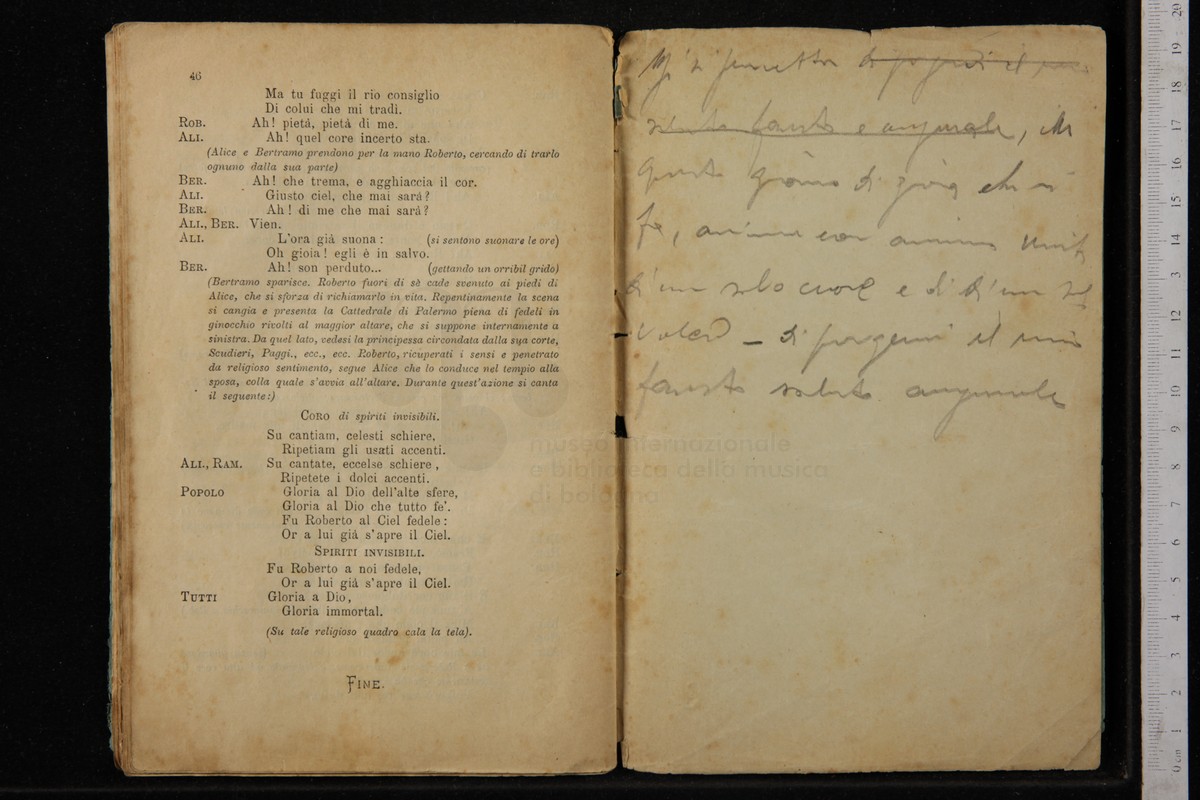 46
Ma tu fuggi il rio consiglio
Di colui che mi tradì.
ROB. Ah! pietá, pietà di me.
ALI. Ah! quel core incerto sta.
(Alice e Bertramo prendono per la mano Roberto, cercando di trarlo
ognuno dalla sua parte)
BER. Ah! che trema, e agghiaccia il cor.
ALI. Giusto ciel, che mai sará?
BER. Ah! di me che mai sará?
ALI., BER. Vien.
ALI. L'ora giá suona: (si sentono suonare le ore)
Oh gioia! egli è in salvo.
BER. Ah! son perduto... (gettando un orribil grido)
(Bertramo sparisce. Roberto fuori di sè cade svenuto ai piedi di
Alice, che si sforza di richiamarlo in vita. Repentinamente la scena
si cangia e presenta la Cattedrale di Palermo piena di fedeli in
ginocchio rivolti al maggior altare, che si suppone internamente a
sinistra. Da quel lato, vedesi la principessa circondata dalla sua corte,
Scudieri, Paggi., ecc., ecc. Roberto, ricuperati i sensi e penetrato
da religioso sentimento, segue Alice che lo conduce nel tempio alla
sposa, colla quale s'avvia all'altare. Durante quest'azione si canta
il seguente:)
CORO di spiriti invisibili.
Su cantiam, celesti schiere,
Ripetiam gli usati accenti.
ALI., RAM. Su cantate, eccelse schiere,
Ripetete i dolci accenti.
POPOLO Gloria al Dio dell'alte sfere,
Gloria al Dio che tutto fe'.
Fu Roberto al Ciel fedele:
Or a lui giá s'apre il Ciel.
SPIRITI INVISIBILI.
Fu Roberto a noi fedele,
Or a lui giá s'apre il Ciel.
TUTTI Gloria a Dio,
Gloria immortal.
(Su tale religioso quadro cala la tela).
FINE.
si permetta di il
fausto e augurale, in
questo giorno di gioia che vi
fa, anima con anima
d'un solo cuore e di d'un sol
volere – di porgervi il mio
fausto saluto augurale
museo internazionale
e biblioteca della musica
di bologna